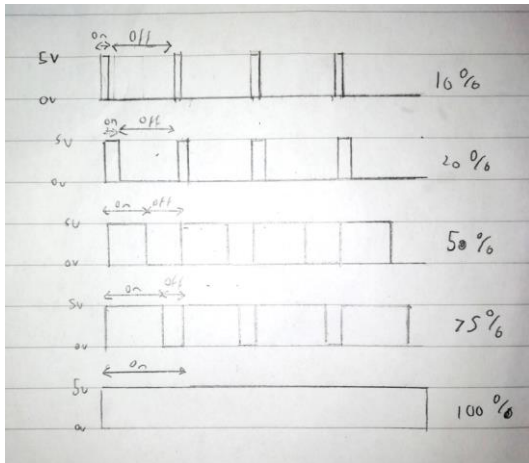 on off
5V
0V
10%
on off
5V
0V
20%
on off
5V
0V
50%
on off
5V
0V
75%
on
5V
0V
100%